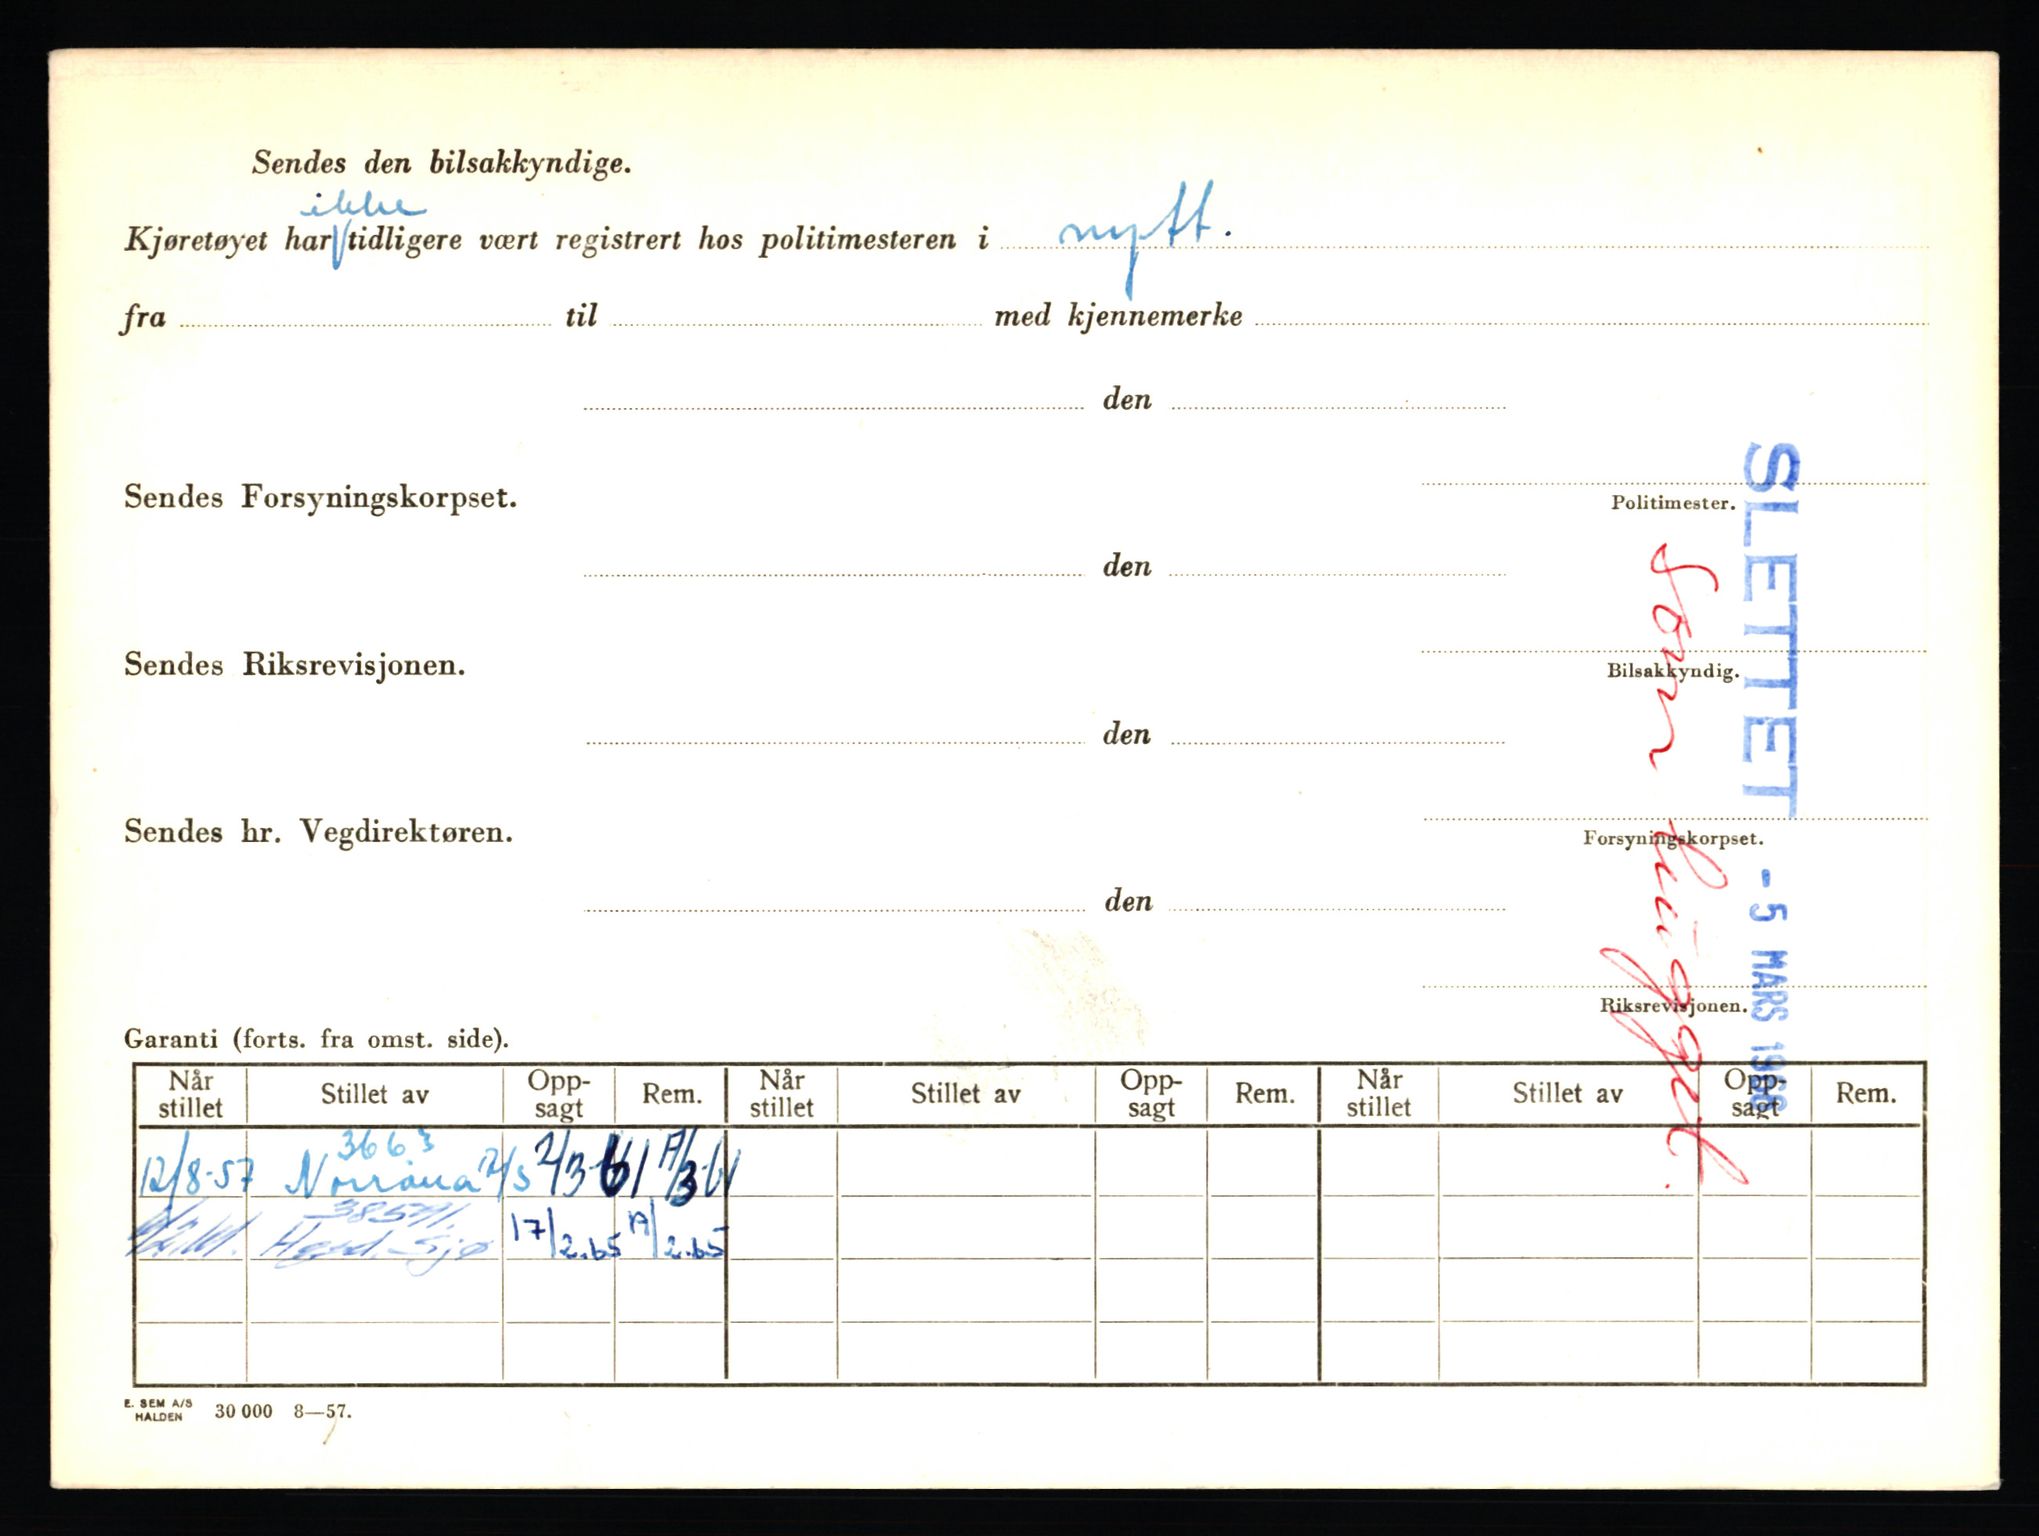 Sendes den bilsakkyndige.
ikke
Kjøretøyet har tidligere vært registrert hos politimesteren i nytt.
fra til med kjennemerke
den
Sendes Forsyningskorpset.
Politimester.
den
Sendes Riksrevisjonen.
Bilsakkyndig.
den
Sendes hr. Vegdirektøren.
Forsyningskorpset.
den
Riksrevisjonen.
SLETTET
- 5 MARS 1966
Som hugget.
Garanti (forts. fra omst. side).
Når stillet Stillet av Opp-sagt Rem. Når stillet Stillet av Opp-sagt Rem. Når stillet Stillet av Opp-sagt Rem.
3663
12/8-57 Norrøna 2/3-61 17/3-61
Sjø 17/2.65 17/2.65
E. SEM A/S
HALDEN 30 000 8—57.